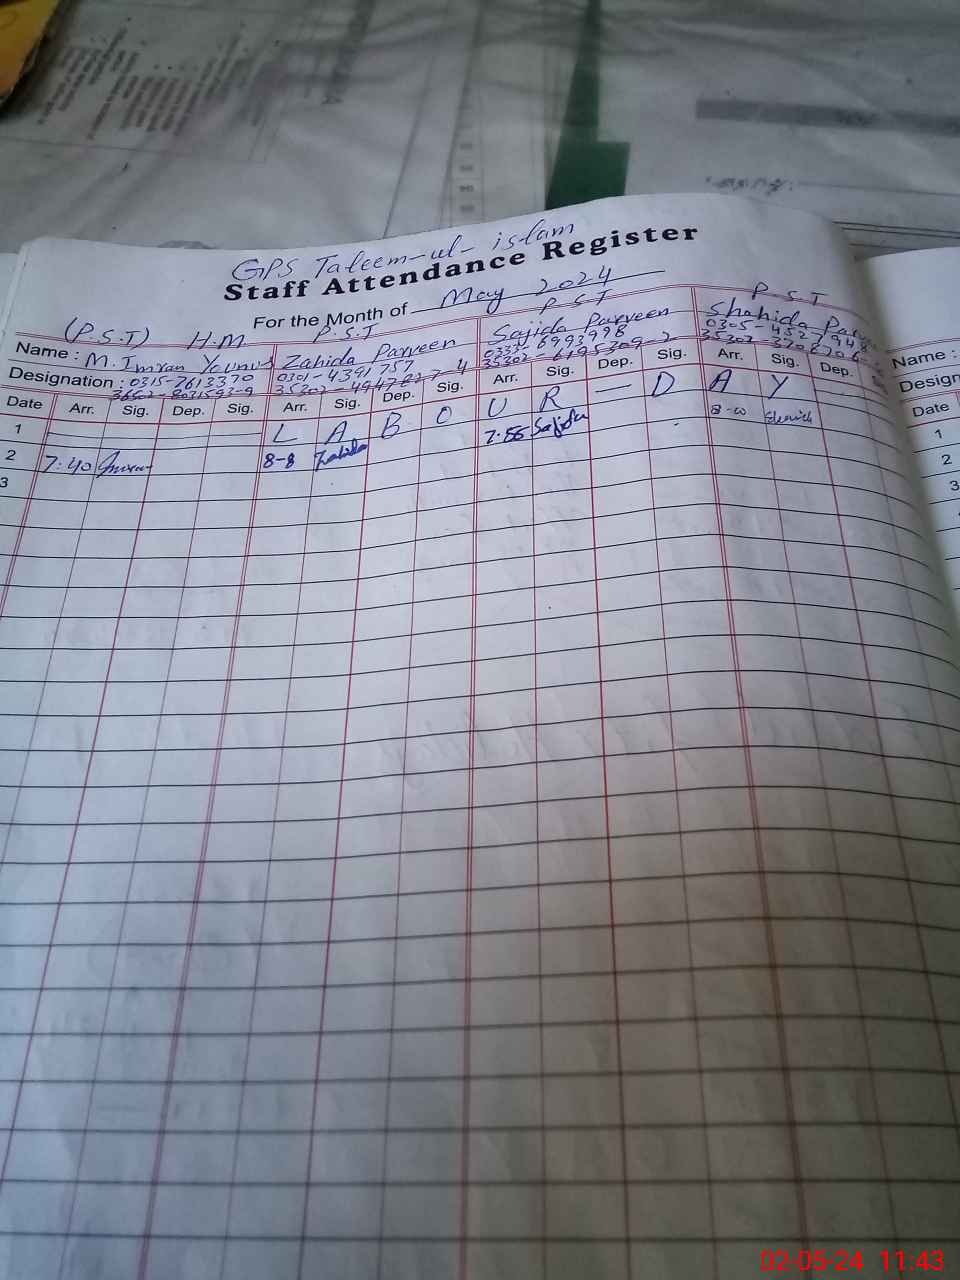 GPS Taleem-ul-islam
Staff Attendance Register
For the Month of May 2024
(P.S.T) H.M P.S.T P.S.T P.S.T
Name : M. Imran Younus Zahida Parveen Sajida Parveen Shahida
Designation : 0315-7613370 0301-4391757 0333-6993998 0305-4527948
36502-8031593-9 35302-4947827-4 35302-6195309-2
Date Arr. Sig. Dep. Sig. Arr. Sig. Dep. Sig. Arr. Sig. Dep. Sig. Arr. Sig. Dep.
1 L A B O U R — D A Y
2 7:40 Imran 8-8 Zahida 7.55 Sajida 8-10
3
Name :
Design
Date
1
2
3
02-05-24 11:43